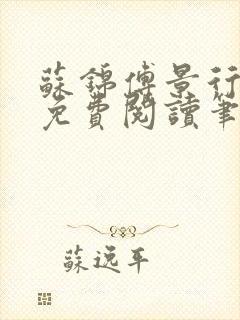 蘇錦傅景行
免費閱讀筆
蘇逸平